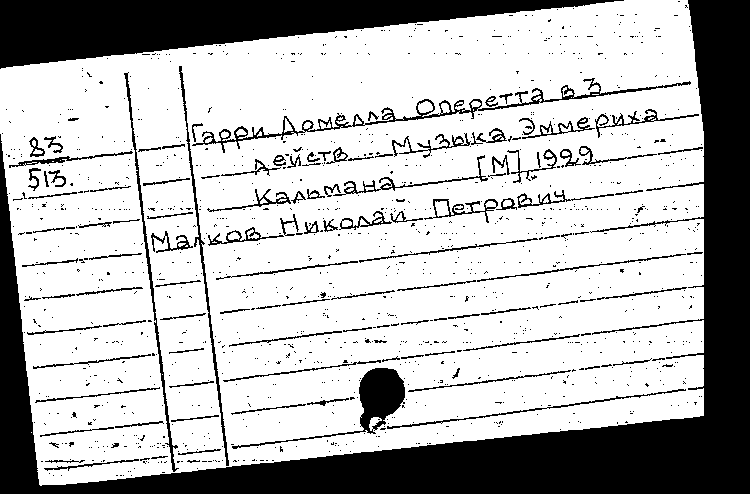 83
513.
Гарри Домелла. Оперетта в 3
действ... Музыка. Эммериха
Кальмана... [М], 1929
Малков Николай Петрович